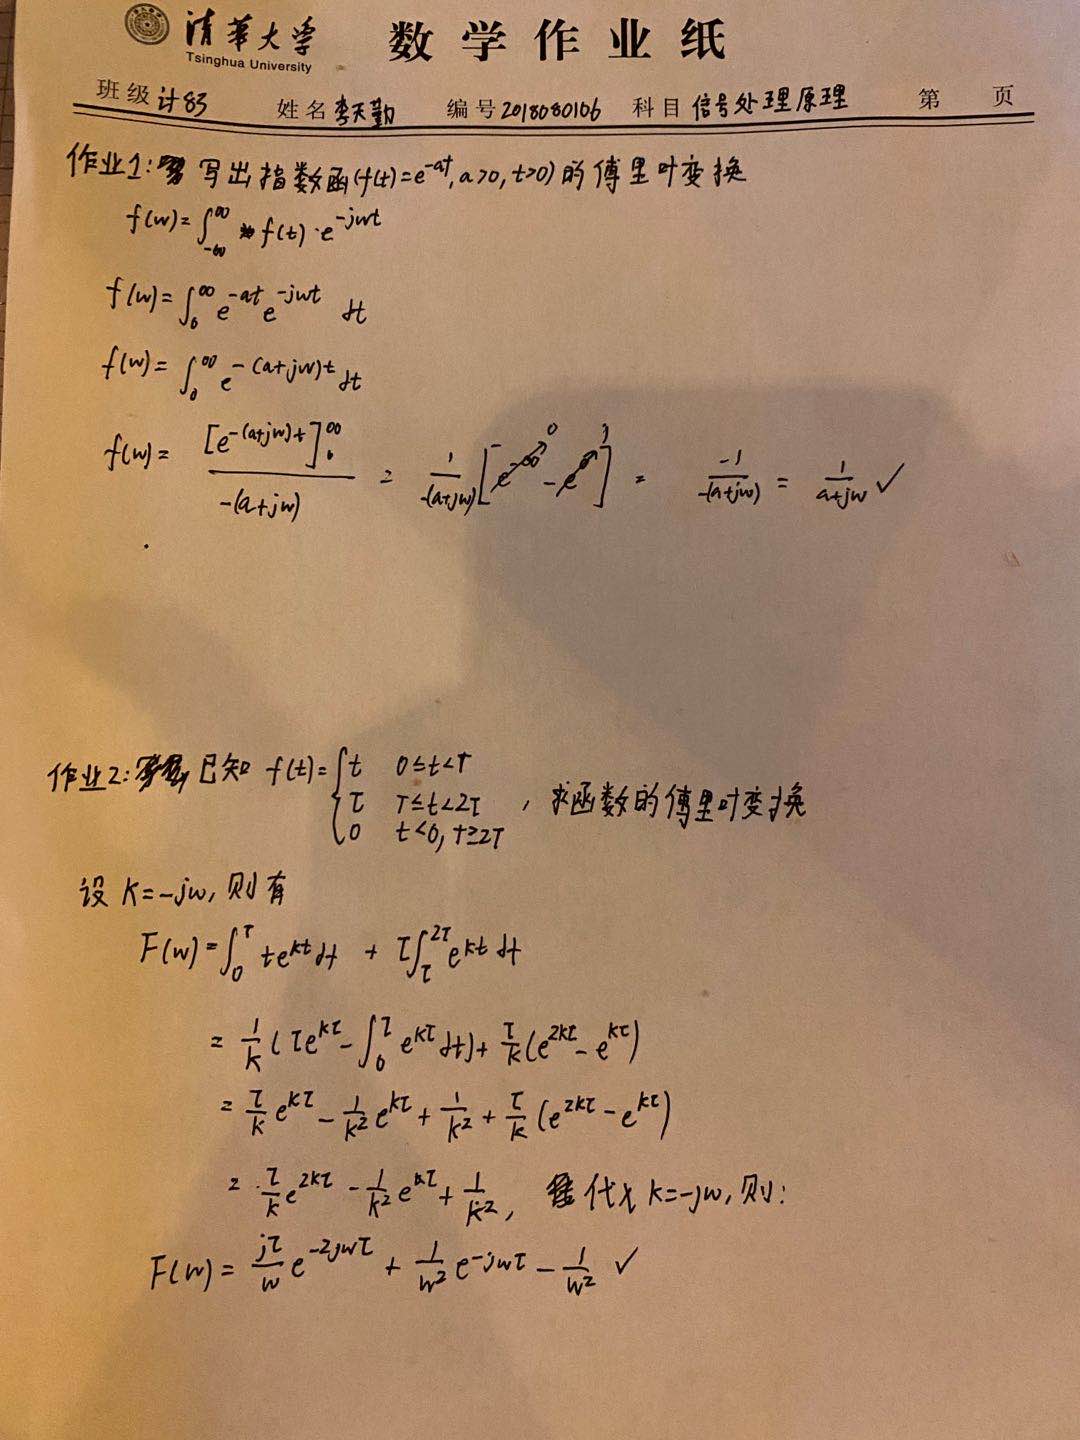 清华大学 数学作业纸
Tsinghua University
班级 计83 姓名 李天勤 编号 2018080106 科目 信号处理原理 第 页
作业1: 写出指数函(f(t)=e^{-at}, a>0, t>0)的傅里叶变换
f(w)=∫_{-∞}^{∞} f(t)·e^{-jwt}
f(w)=∫_0^∞ e^{-at} e^{-jwt} dt
f(w)=∫_0^∞ e^{-(a+jw)t} dt
f(w)= [e^{-(a+jw)t}]_0^∞ / -(a+jw) = 1/-(a+jw) [e^{-∞} - e^0] = -1/-(a+jw) = 1/(a+jw) ✓
作业2: 已知 f(t)={t 0≤t<τ
τ τ≤t<2τ , 求函数的傅里叶变换
0 t<0, t≥2τ
设 K=-jw, 则有
F(w)=∫_0^τ te^{kt}dt + τ∫_τ^{2τ} e^{kt} dt
= 1/k (τe^{kτ} - ∫_0^τ e^{kτ} dt) + τ/k (e^{2kτ} - e^{kτ})
= τ/k e^{kτ} - 1/k² e^{kτ} + 1/k² + τ/k (e^{2kτ} - e^{kτ})
= τ/k e^{2kτ} - 1/k² e^{kτ} + 1/k², 代入 k=-jw, 则:
F(w) = jτ/w e^{-2jwτ} + 1/w² e^{-jwτ} - 1/w² ✓